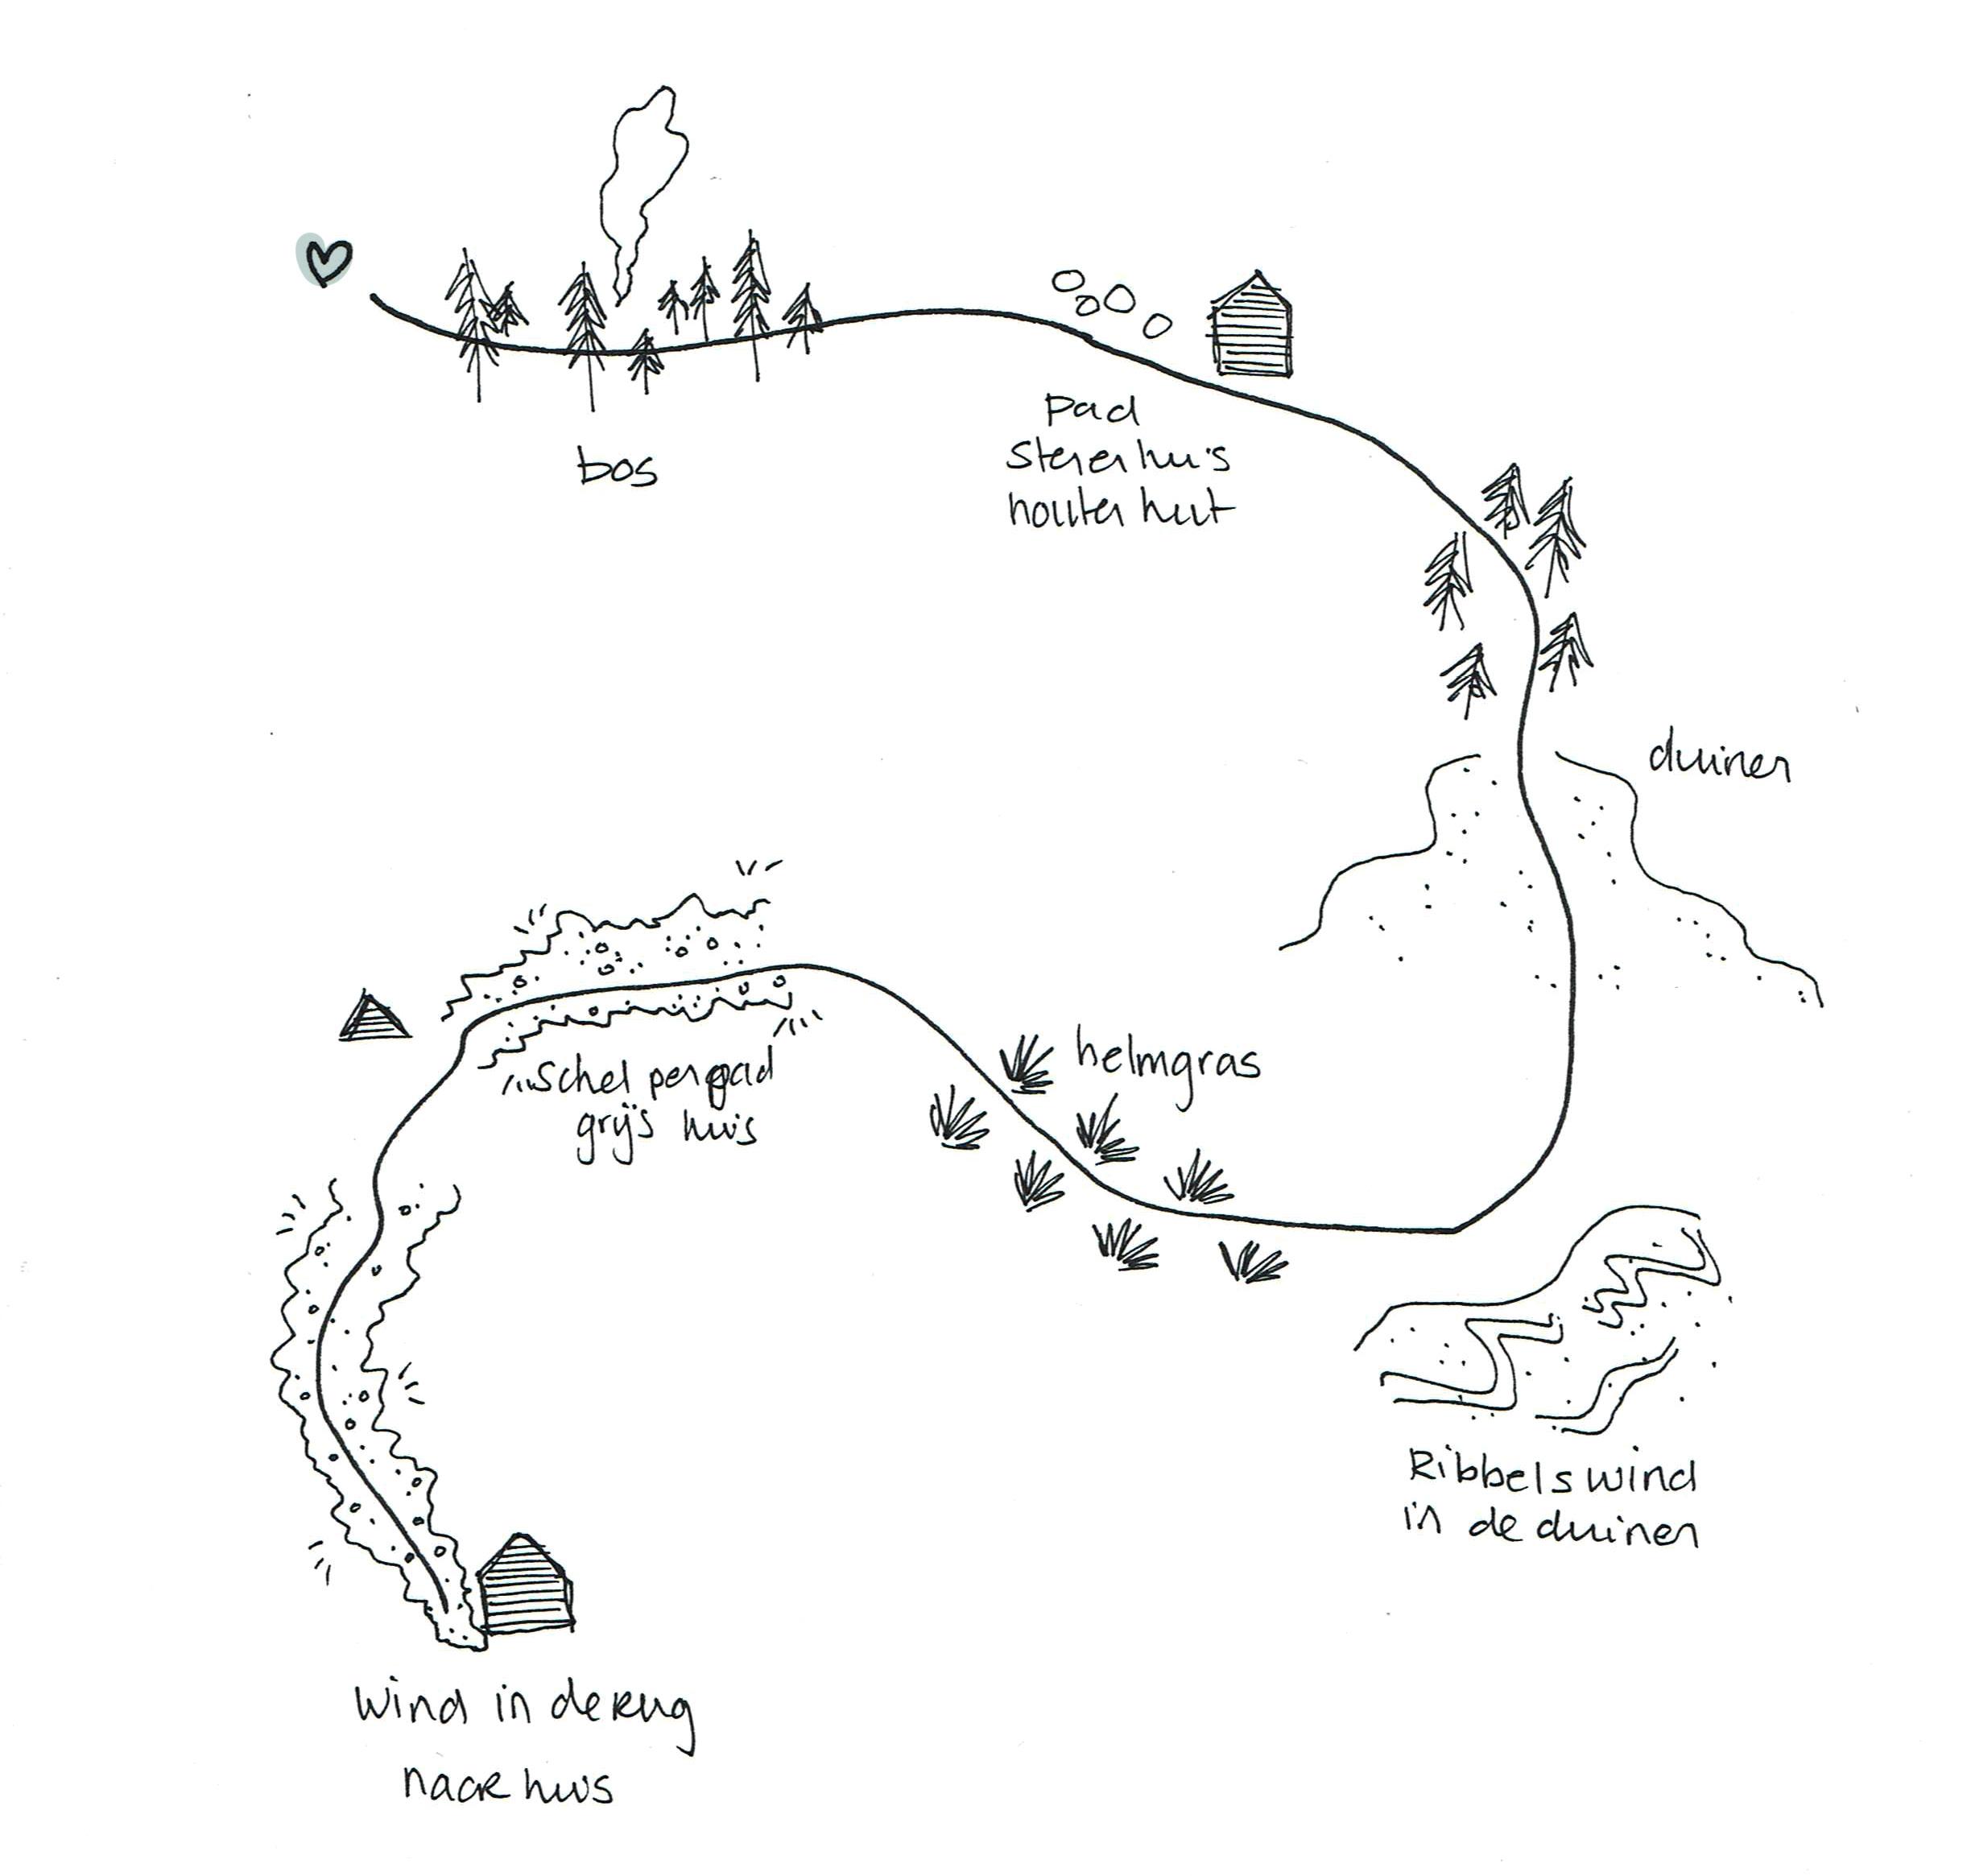 bos
pad
stenenhuis
houten hut
duinen
helmgras
schelpenpad
grijs huis
Ribbels wind
in de duinen
wind in de rug
naar huis